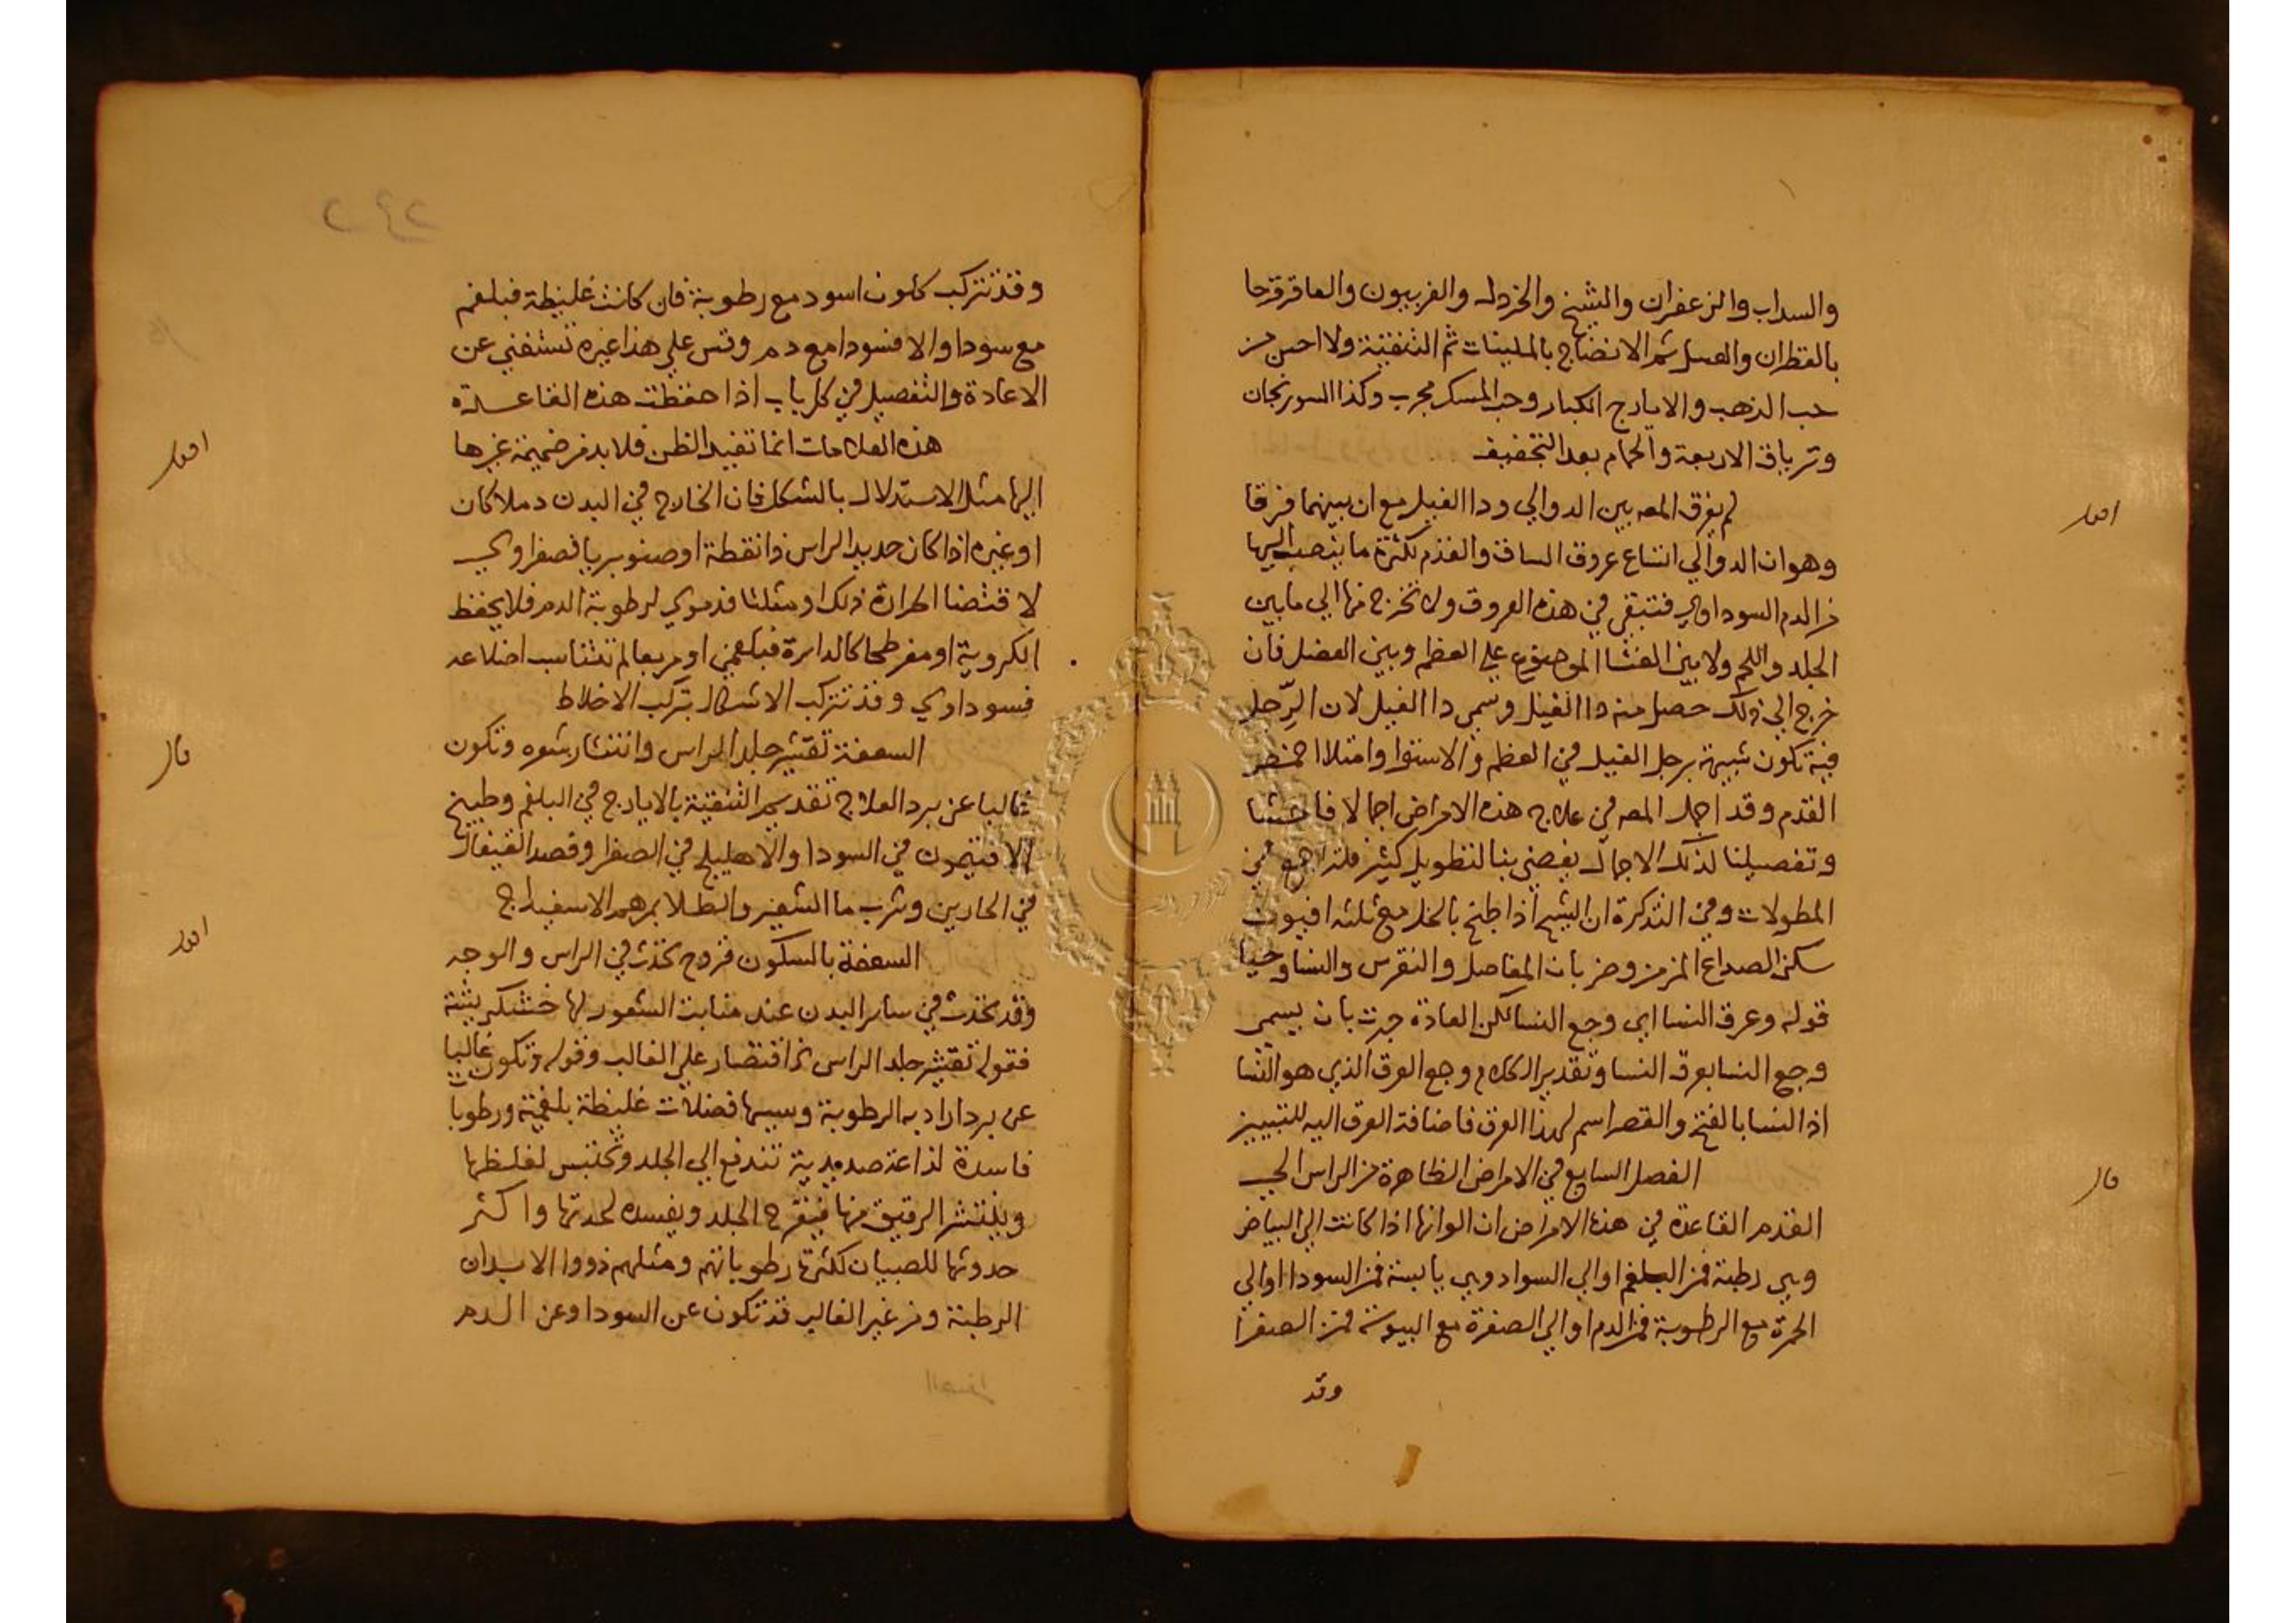 والسداب والزعفران والشيح والخردل والفربيون والعاقرقرحا
بالقطران والعسل ثم الانضاج بالملينات ثم التنقية ولا احسن من
حب الذهب والايارج الكبار وحب المسكر مجرب وكذا السورنجان
وترياق الاربعة والحمام بعد التجفيف
اقول
لم يفرق المصه بين الدوالي ودا الفيل مع ان بينهما فرقا
وهو ان الدوالي اتساع عروق الساق والقدم لكثرة ما ينصب اليها
من الدم السوداوي فتبقى في هذه العروق ولا تخرج منها الي ما بين
الجلد واللحم ولا بين الغشا الموضوع علي العظم وبين العضل فان
خرج الي ذلك حصل منه دا الفيل وسمي دا الفيل لان الرّجل
فيه تكون شبيهة برجل الفيل في العظم والاستوا وامتلا اخمص
القدم وقد اجمل المصه في علاج هذه الامراض اجمالا فاحشا
وتفصيلنا لذلك الاجمال يفضي بنا لتطويل كثير فلتراجع في
المطولات وفي التذكرة ان الشيح اذا طبخ بالخل مع ثلثه افيون
سكن الصداع المزمن وضربان المفاصل والنقرس والنسا وحيا
قوله وعرق النسا اي وجع النسا لكن العادة جرت بان يسمي
وجع النسا بعرق النسا وتقدير الكلام وجع العرق الذي هو النسا
اذ النسا بالفتح والقصر اسم لهذا العرق فاضافة العرق اليه للتبيين
قال
الفصل السابع في الامراض الظاهرة من الراس الي
القدم القاعدة في هذه الامراض ان الوانها اذا كانت الي البياض
وهي رطبة فمن البلغم او الي السواد وهي يابسة فمن السودا او الي
الحمرة مع الرطوبة فمن الدم او الي الصفرة مع اليبوسة فمن الصفرا
وقد
وقد تتركب كلون اسود مع رطوبة فان كانت غليظة فبلغم
مع سودا والا فسودا مع دم وقس علي هذا غيره تستغني عن
الاعادة والتفصيل في كل باب اذا حفظت هذه القاعدة
اقول
هذه العلامات انما تفيد الظن فلا بد من ضميمة غيرها
اليها مثل الاستدلال بالشكل فان الخارج في البدن دملا كان
او غيره اذا كان حديد الراس ذا نقطة او صنوبريا فصفراوي
لاقتضا الحرارة ذلك او مثلثا فدموي لرطوبة الدم فلا يحفظ
الكروية او مفرطحا كالدايرة فبلغمي او مربعا لم تتناسب اضلاعه
فسوداوي وقد تتركب الاشكال بتركب الاخلاط
قال
السعفة تقشير جلد الراس وانتشار شعره وتكون
غالبا عن برد العلاج تقديم التنقية بالايارج في البلغم وطبيخ
الافتيمون في السودا والاهليلج في الصفرا وفصد القيفال
في الحارين وشرب ما الشعير والطلا بمرهم الاسفيداج
اقول
السعفة بالسكون قروح تحدث في الراس والوجه
وقد تحدث في ساير البدن عند منابت الشعور لها خشكريشة
فقوله تقشير جلد الراس اقتصار علي الغالب وقوله وتكون غالبا
عن برد اراد به الرطوبة وسببها فضلات غليظة بلغمية ورطوبات
فاسدة لذاعة صديدية تندفع الي الجلد وتحتبس لغلظها
وينتشر الرقيق منها فيقرح الجلد ويفسده لحدتها واكثر
حدوثها للصبيان لكثرة رطوباتهم ومثلهم ذووا الابدان
الرطبة ومن غير الغالب قد تكون عن السودا وعن الدم